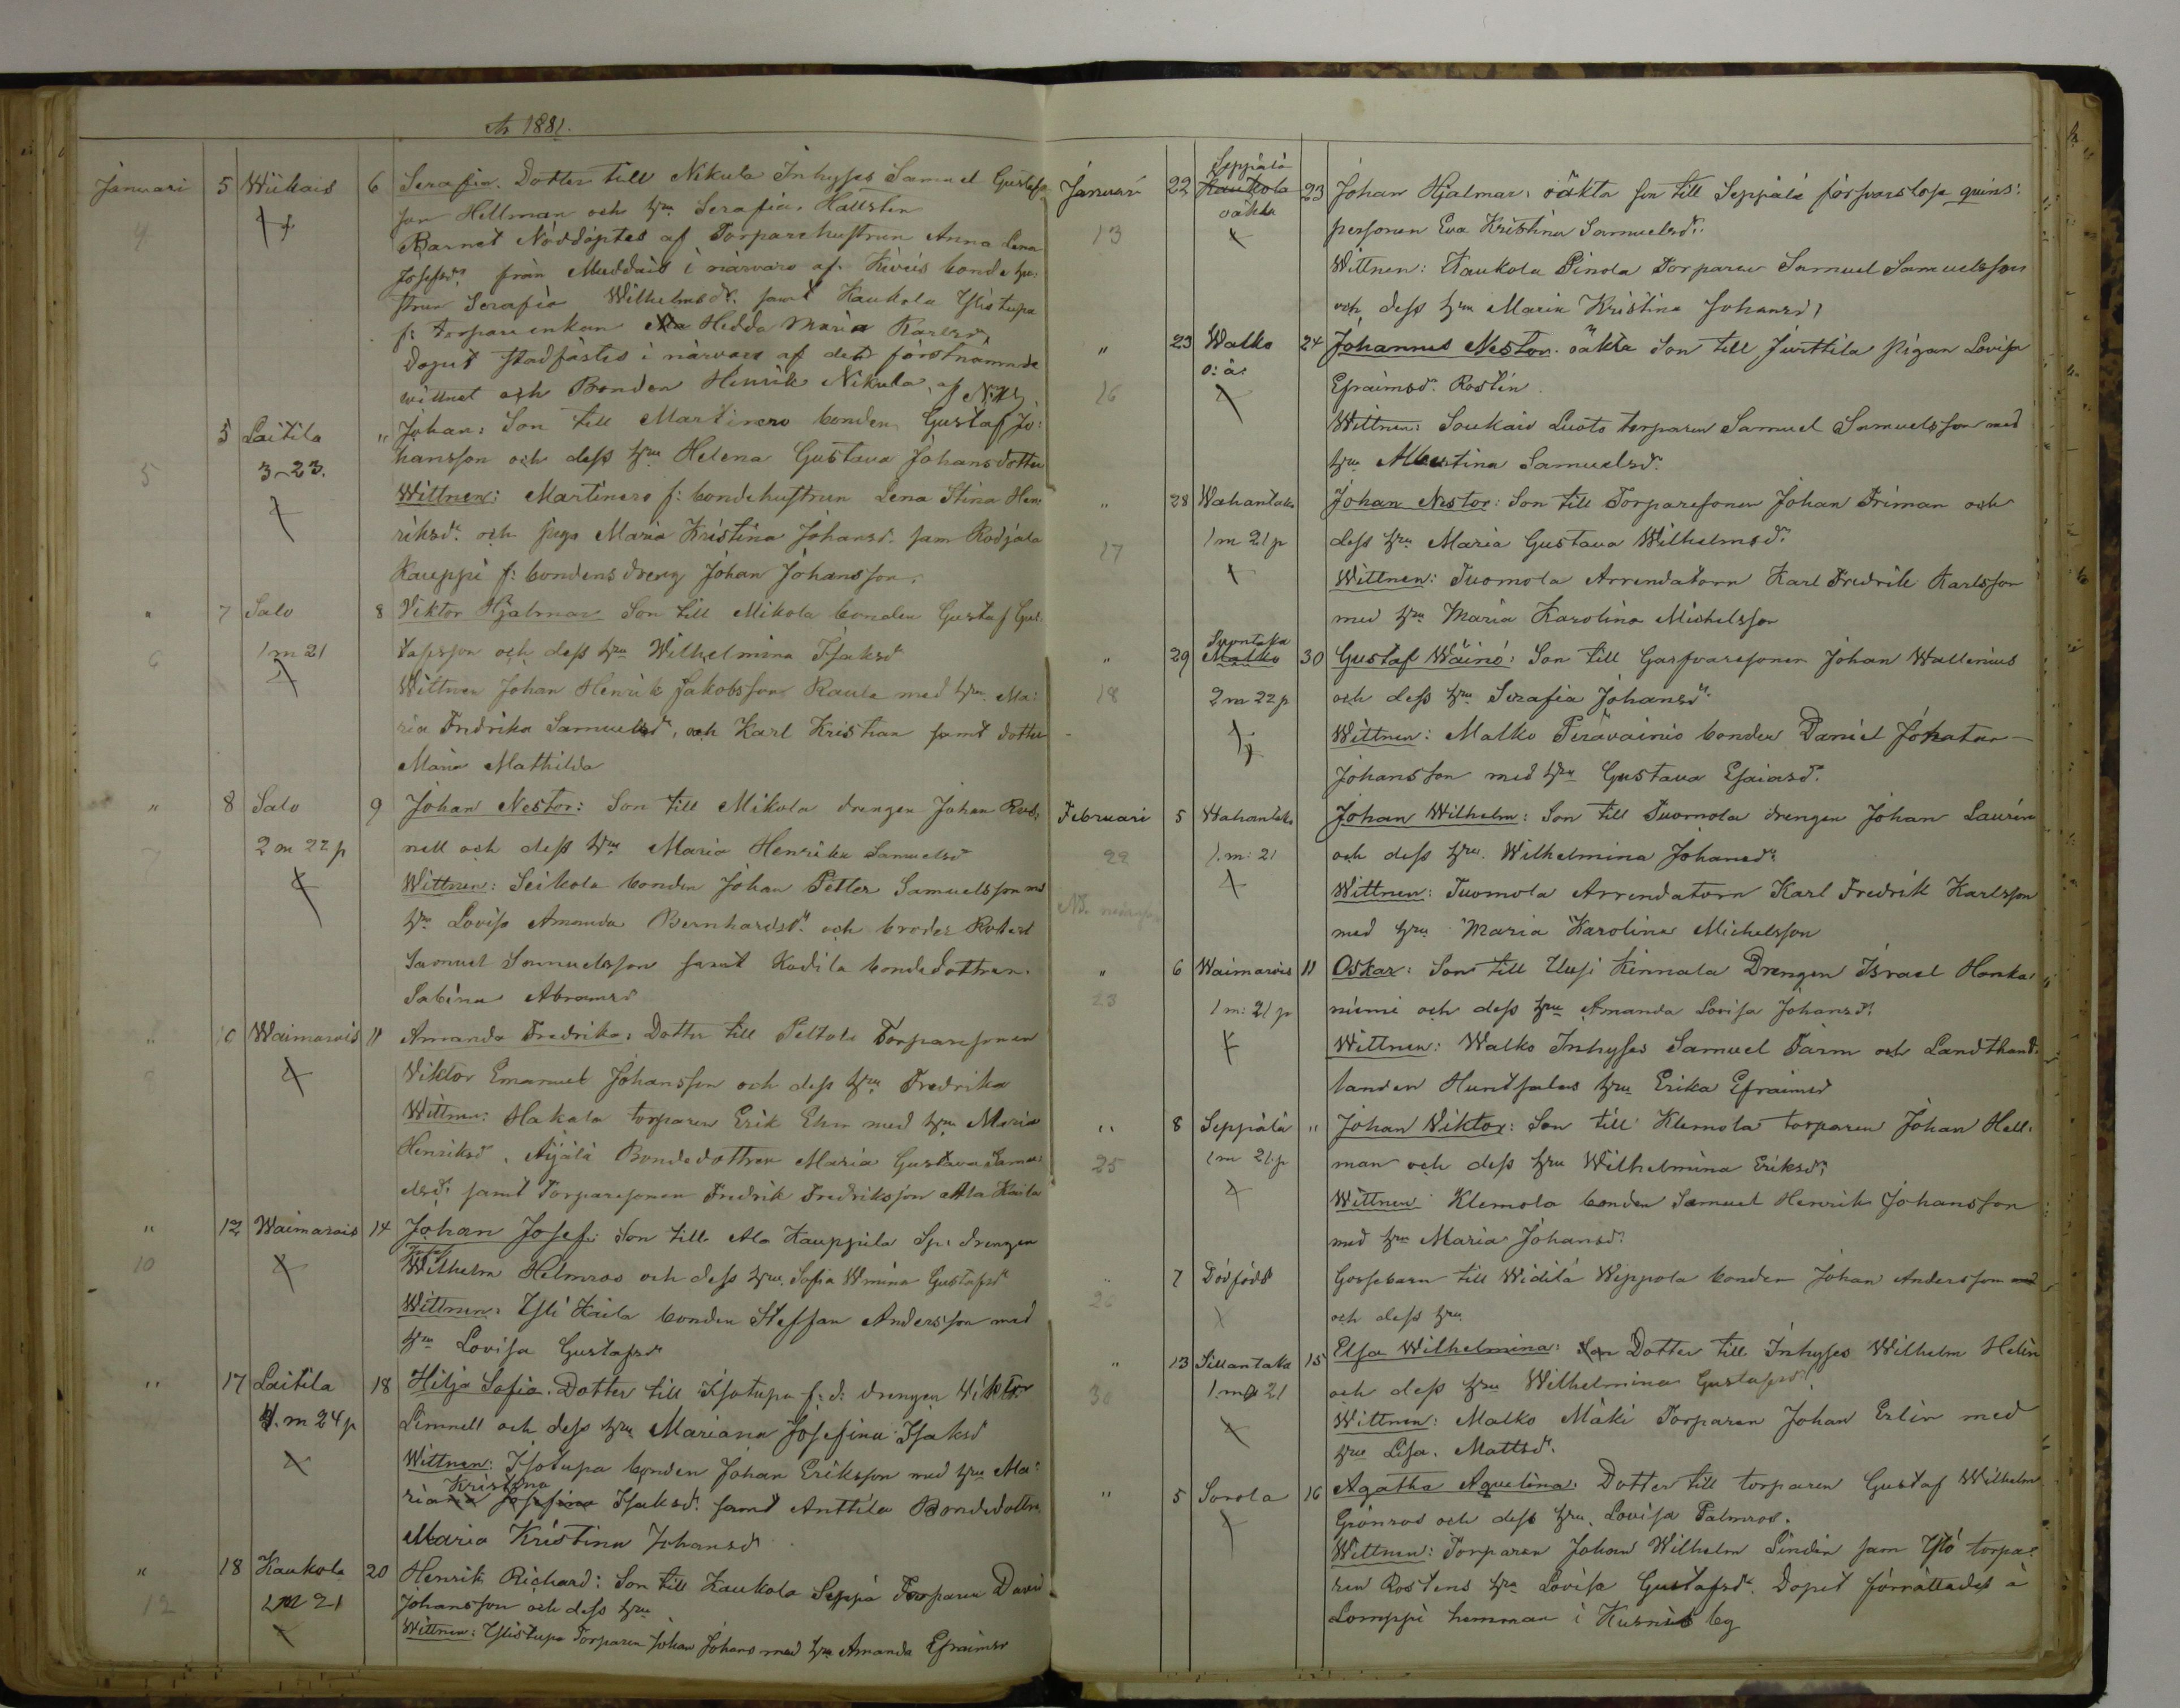 År 1881.
Januari 5 Wiikais 6 Serafia. Dotter till Nikula Inhyses Samuel Gustafs
son Hellman och hru Serafia. Hallstén
4 Barnet Nöddöptes af Torparehustrun Anna Lena
Josefsdr från Muddais i närvaro af bonde hu:
strun Serafia Wilhelmsdr. samt Kaukola Ylistupa
f: torpareenkan Hedda Maria Karlsdr
Dopet stadfästes i närvaro af det förstnämnda
wittnet och Bonden Henrik Nikula, af
5 Laitila " Johan: Son till Martinero bonden Gustaf Jo:
3-23. hansson och dess hru Helena Gustava Johansdotter
5 Wittnen: Martinero f: bondehustrun Lena Stina Hen
riksdr. och piga Maria Kristina Johansdr. sam Kodjala
Kauppi f: bondens dreng Johan Johansson.
" 7 Salo 8 Viktor Hjalmar Son till Mikola bonden Gustaf Gus
6 1 m 21 tafsson och dess hru Wilhelmina Isaksdr
Wittnen Johan Henrik Jakobsson Raula med hru Ma:
ria Fredrika Samuelsdr, och Karl Kristian samt dotter
Maria Mathilda
" 8 Salo 9 Johan Nestor: Son till Mikola drengen Johan Ros:
7 2 m 22 p nell och dess hru Maria Henrika Samuelsdr
Wittnen: Seikola bonden Johan Petter Samuelsson med
hru Lovisa Amanda Bernhardsdr. och broder Robert
Samuel Samuelsson samt Kodila bondedottren
Sabina Abramsdr
" 10 Waimarois 11 Amanda Fredrika: Dotter till Peltola Torparesonen
Viktor Emanuel Johansson och dess hru Fredrika
Wittnen: Hakala torparen Erik Elin med hru Maria
Henriksdr. Äijälä Bondedottren Maria Gustava Samu:
elsdr: samt Torparesonen Fredrik Fredriksson Ala Kaila
" 12 Waimarois 14 Johan Josef: Son till Ala Kauppila Sp: drengen
10 Wilhelm Helmros och dess hru. Sofia Wmina Gustafsdr
Wittnen: Yli Kaila bonden Steffan Andersson med
hru Lovisa Gustafsdr
" 17 Laitila 18 Hilja Sofia. Dotter till Isotupa f: d: drengen Viktor
1. m 24 p Limnell och dess hru Mariana Josefina Isaksdr
Wittnen: Isotupa bonden Johan Eriksson med hru Ma:
Kristina
riana Josefina Isaksdr. samt Anttila Bondedottr.
Maria Kristina Johansdr
" 18 Kaukola 20 Henrik Richard: Son till Kaukola Seppä Torparen David
12 1 m 21 Johansson och dess hru
Wittnen: Ylistupa Torparen Johan Johans med hru Amanda Efraimsdr
Seppälä
Januari 22 Kaukola 23 Johan Hjalmar: oäkta son till Seppälä försvarslösa quins:
oäkta
13 personen Eva Kristina Samuelsdr.
Wittnen: Kaukola Pinola Torparen Samuel Samuelsson
och dess hru Maria Kristina Johansdr
" 23 Walko 24 Johannes Nestor. oäkta Son till Jurttila Pigan Lovisa
16 o: ä: Efraimsdr. Rostén
Wittnen: Soukais Luoto torparen Samuel Samuelsson med
hru Albertina Samuelsdr.
" 28 Wahantaka Johan Nestor: Son till Torparesonen Johan Friman och
17 1 m 21 p dess hru Maria Gustava Wilhelmsdr.
Wittnen: Tuomola Arrendatorn Karl Fredrik Karlsson
med hru Maria Karolina Michelsson
Suontaka
" 29 Malko 30 Gustaf Wäinö: Son till Garfvaresonen Johan Wallenius
18 2 m 22 p och dess hru Serafia Johansdr.
Wittnen: Malko Perävainio bonden Daniel Johatan
Johansson med hru Gustava Esaiasdr.
Februari 5 Wahantaka Johan Wilhelm: Son till Tuomola drengen Johan Laurén
22 1. m: 21 och dess hru. Wilhelmina Johansdr
Wittnen: Tuomola Arrendatorn Karl Fredrik Karlsson
med hru Maria Karolina Michelsson
" 6 Waimarois 11 Oskar: Son till Uusi Kinnala Drengen Israel Honka
23 1 m: 21 p niemi och dess hru Amanda Lovisa Johansdr
Wittnen: Walko Inhyses Samuel Tarm och Landthand:
landen Hundsalas hru Erika Efraimsdr
" 8 Seppälä " Johan Viktor: Son till Klemola torparen Johan Hell:
25 1 m 21 p man och dess hru Wilhelmina Eriksdr
Wittnen Klemola bonden Samuel Henrik Johansson
med hru Maria Johansdr
" 7 Dödföds Gossebarn till Widilä Weppola bonden Johan Andersson
26 och dess hru
" 13 Sillantaka 15 Elsa Wilhelmina: Dotter till Inhyses Wilhelm Helin
30 1. m 21 och dess hru Wilhelmina Gustafsdr
Wittnen: Malko Mäki Torparen Johan Erlin med
hru Lisa. Mattsdr.
" 5 Sorola 16 Agatha Aquelina: Dotter till torparen Gustaf Wilhelm
Grönros och dess hru. Lovisa Palmros.
Wittnen: Torparen Johan Wilhelm Lindén sam Yló torpa:
ren Rosténs hru Lovisa Gustafsdr. Dopet förrättades å
Lomppi hemman i Kusnis by